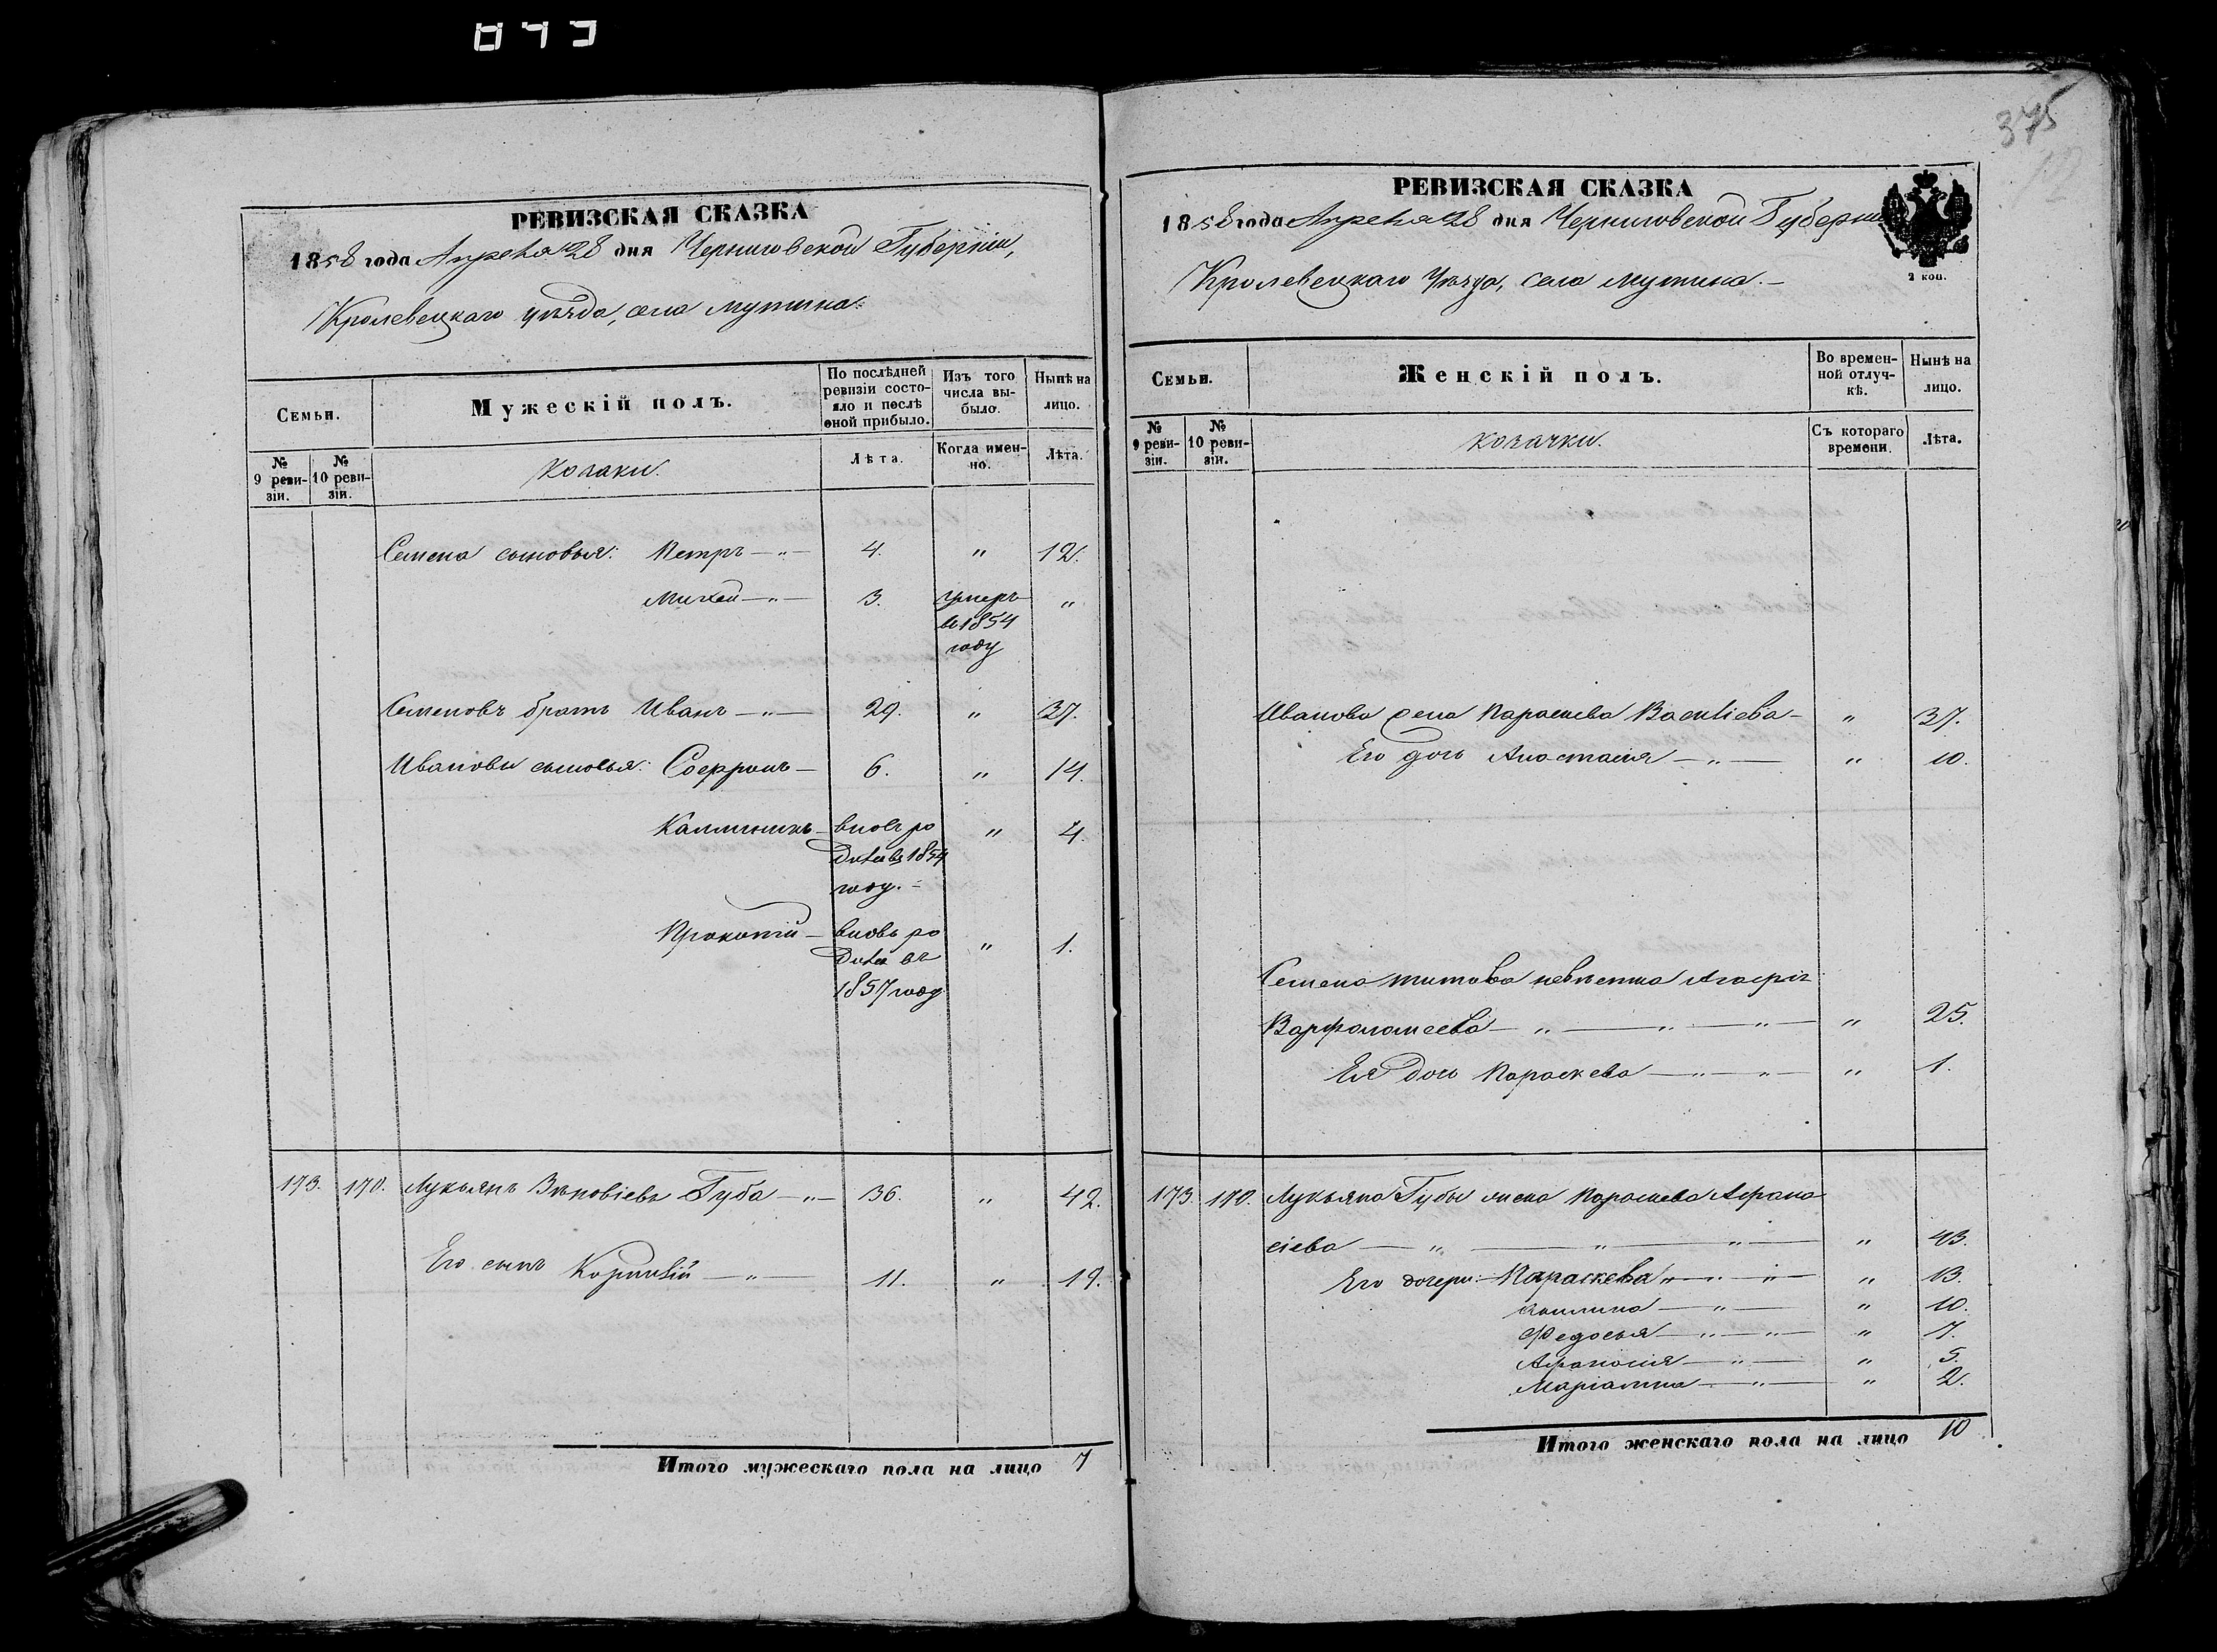 375
РЕВИЗСКАЯ СКАЗКА
1858 года Апреля 28 дня Черниговской Губерніи,
Кролевецкаго уѣзда, села Мутина.
Семьи.
Мужескій полъ.
По послѣдней ревизіи состо-
яло и послѣ оной прибыло.
Изъ того числа вы-
было.
Нынѣ на лицо.
№ 9 реви-
зіи.
№ 10 реви-
зіи.
Козаки.
Лѣта.
Когда имен-
но.
Лѣта.
Семена сыновья: Петръ — " — 4. " 12.
Михей — " — 3. умеръ "
въ 1854
году
Семеновъ братъ Иванъ — " — 29. " 37.
Ивановы сыновья: Софронъ — 6. " 14.
Каллиникъ — вновь ро " 4.
дился въ 1854
году. —
Прокопій — вновь ро " 1.
дился въ
1857 году
173. 170. Лукьянъ Зѣновіевъ Губа — " — 36. " 42.
Его сынъ Корнилій — " — 11. " 19.
Итого мужескаго пола на лицо 7
РЕВИЗСКАЯ СКАЗКА
1858 года Апреля 28 дня Черниговской Губерніи
Кролевецкаго Уѣзда, села Мутина. —
2 коп.
Семьи.
Женскій полъ.
Во времен-
ной отлуч-
кѣ.
Нынѣ на лицо.
№ 9 реви-
зіи.
№ 10 реви-
зіи.
Козачки.
Съ котораго времени.
Лѣта.
Иванова жена Параскева Васильева — " 37.
Его дочь Анастасія — " — " 10.
Семена Титова невѣстка
Варфоломеева — " — " — " — " 25.
Ея дочь Параскева — " — " — " 1.
173. 170. Лукьяна Губы жена Параскева Афана
сіева — " — " — " — " 43.
Его дочери: — Параскева " — " — " — " 13.
— " — " 10.
Федосья — " — " — " 7.
Афанасія — " — " 5.
Маріанна — " — " 2.
Итого женскаго пола на лицо 10